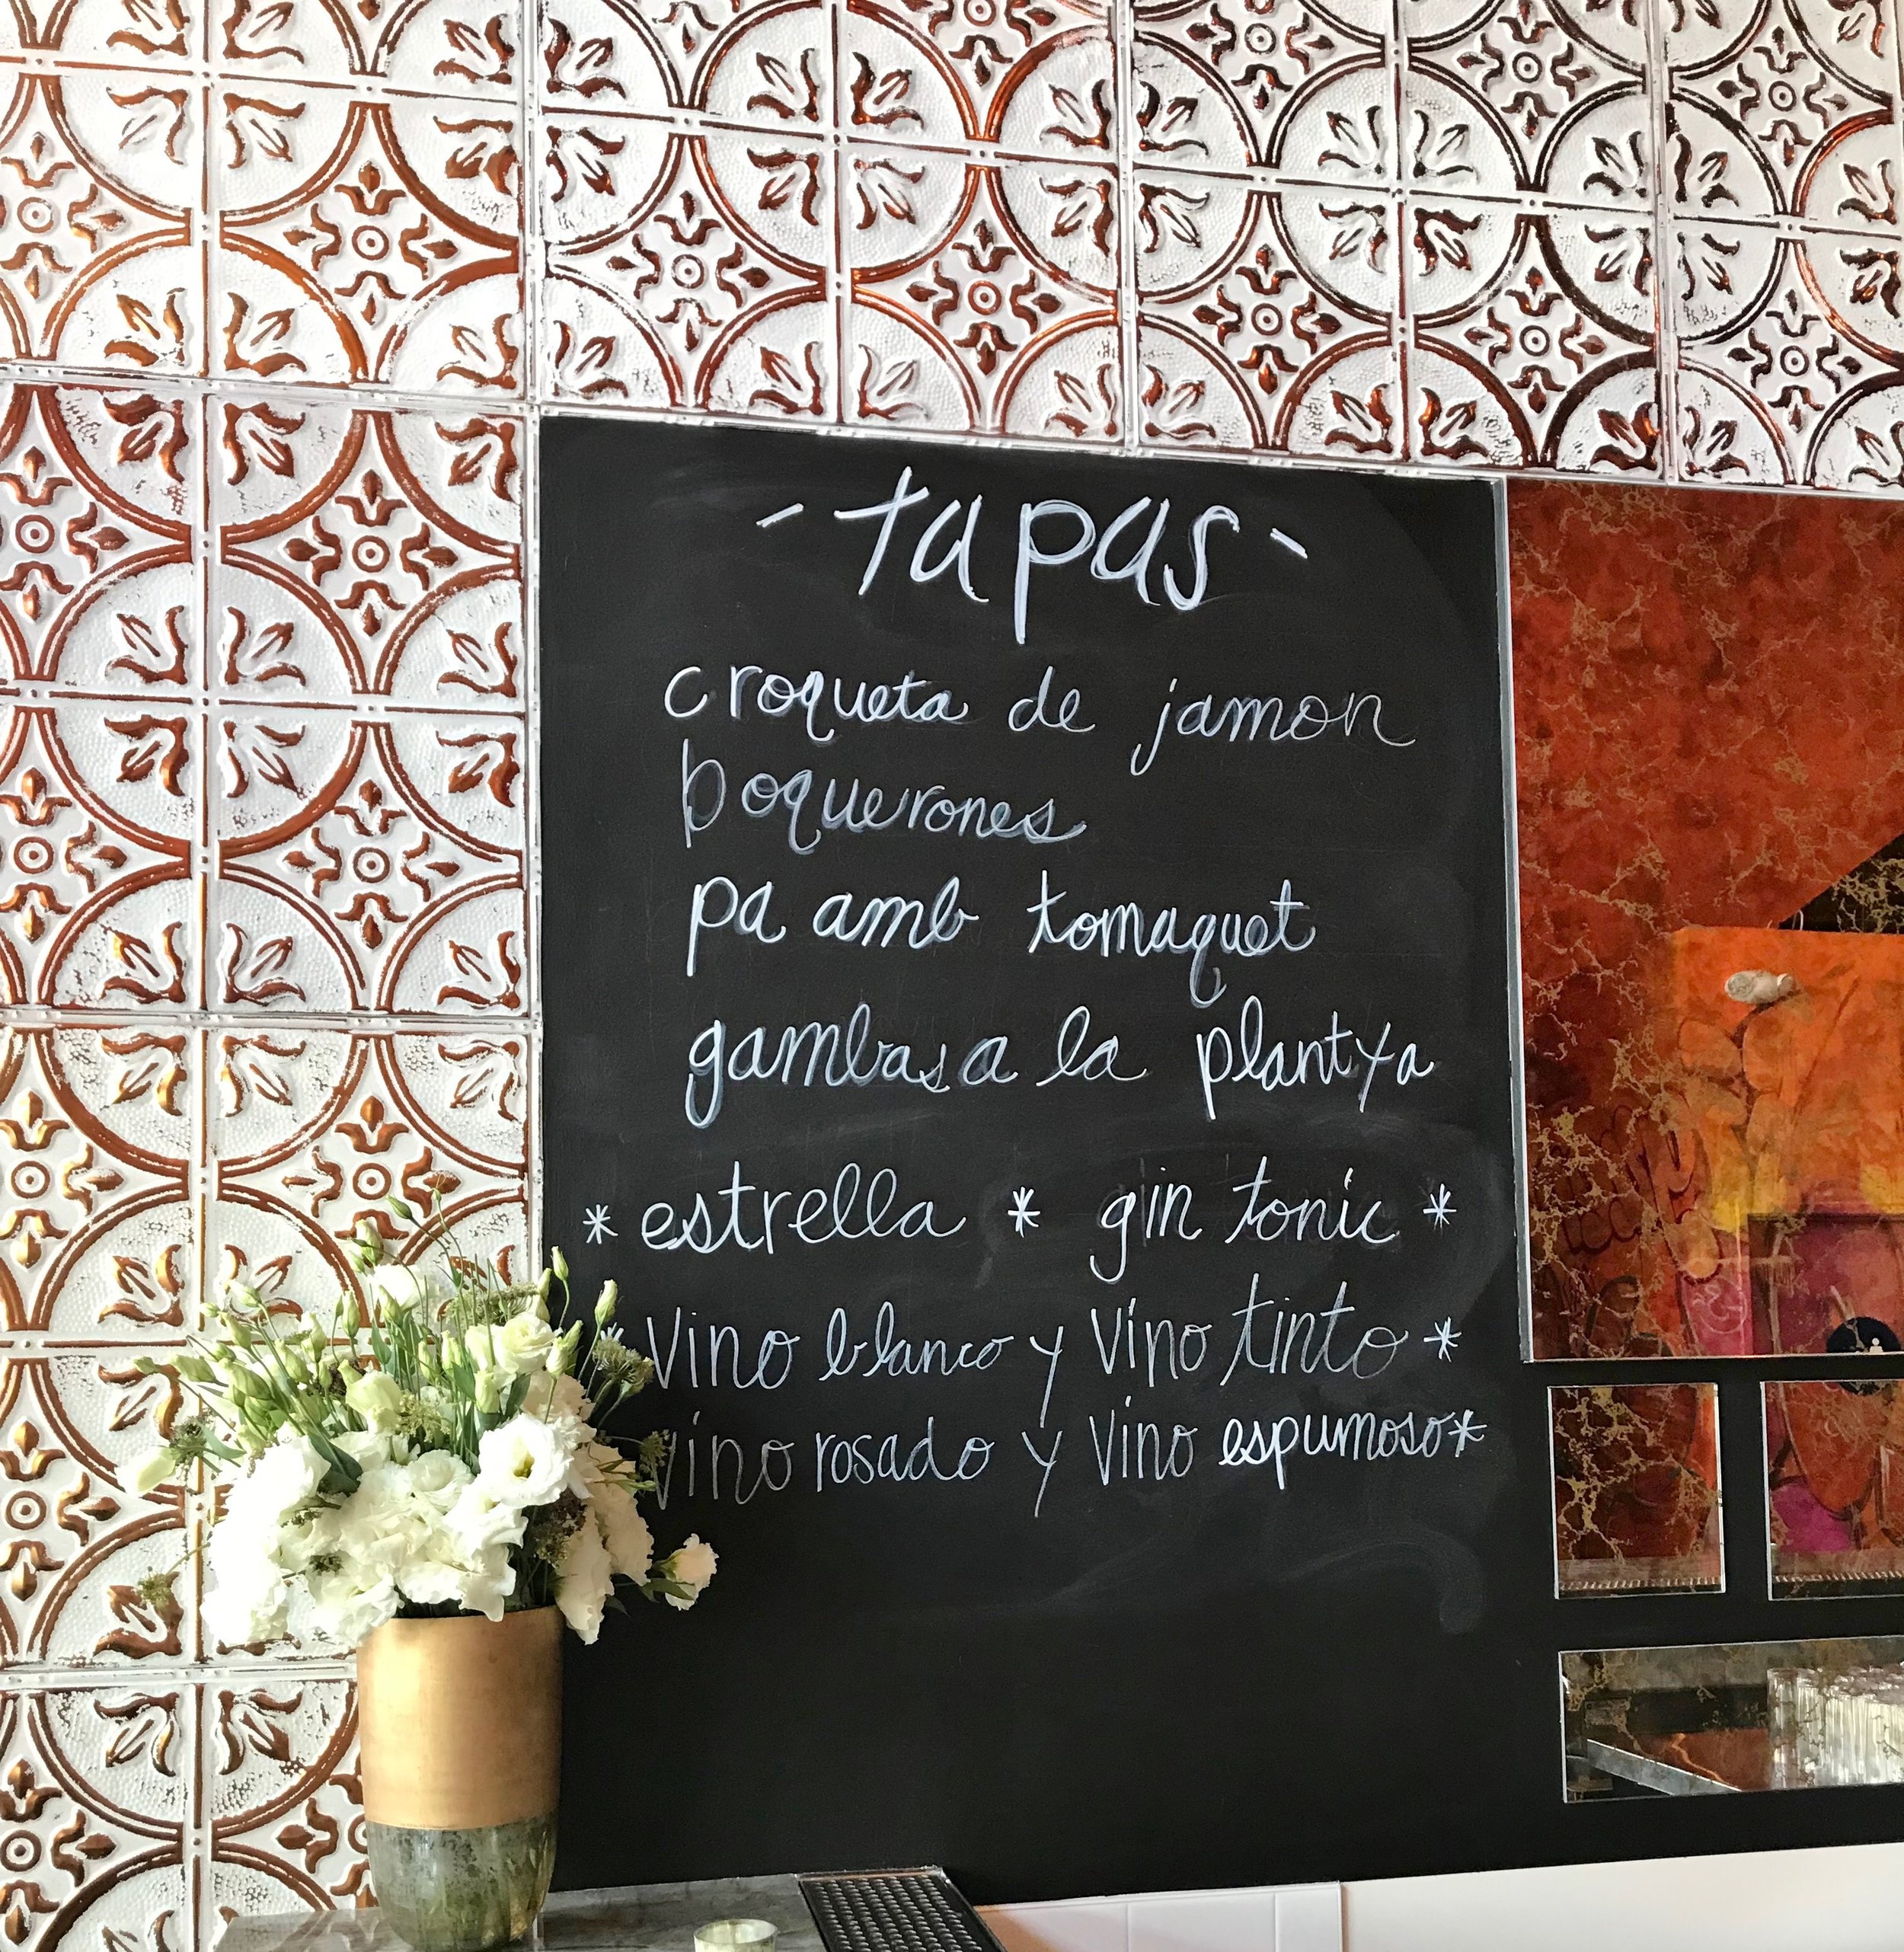 - tapas -
croqueta de jamon
boquerones
pa amb tomaquet
gambas a la plantxa
* estrella * gin tonic *
* vino blanco y vino tinto *
vino rosado y vino espumoso *